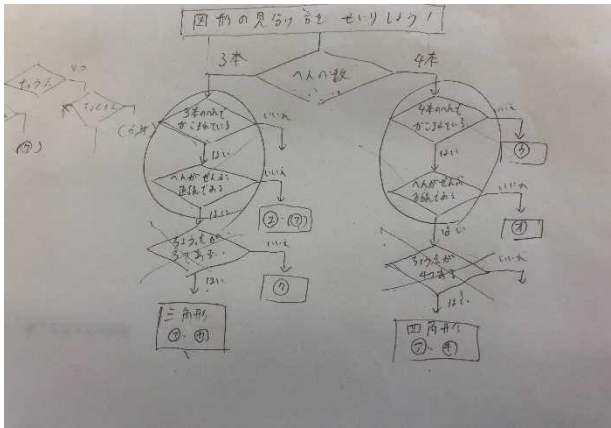 図形の見分け方を せいりしよう！
3本
4本
へんの数
3本のへんで
かこまれている
いいえ
はい
へんがぜんぶ
直線である
いいえ
はい
ちょう点が
3つある
いいえ
はい
三角形
4本のへんで
かこまれている
いいえ
はい
へんがぜんぶ
直線である
いいえ
はい
ちょう点が
4つある
いいえ
はい
四角形